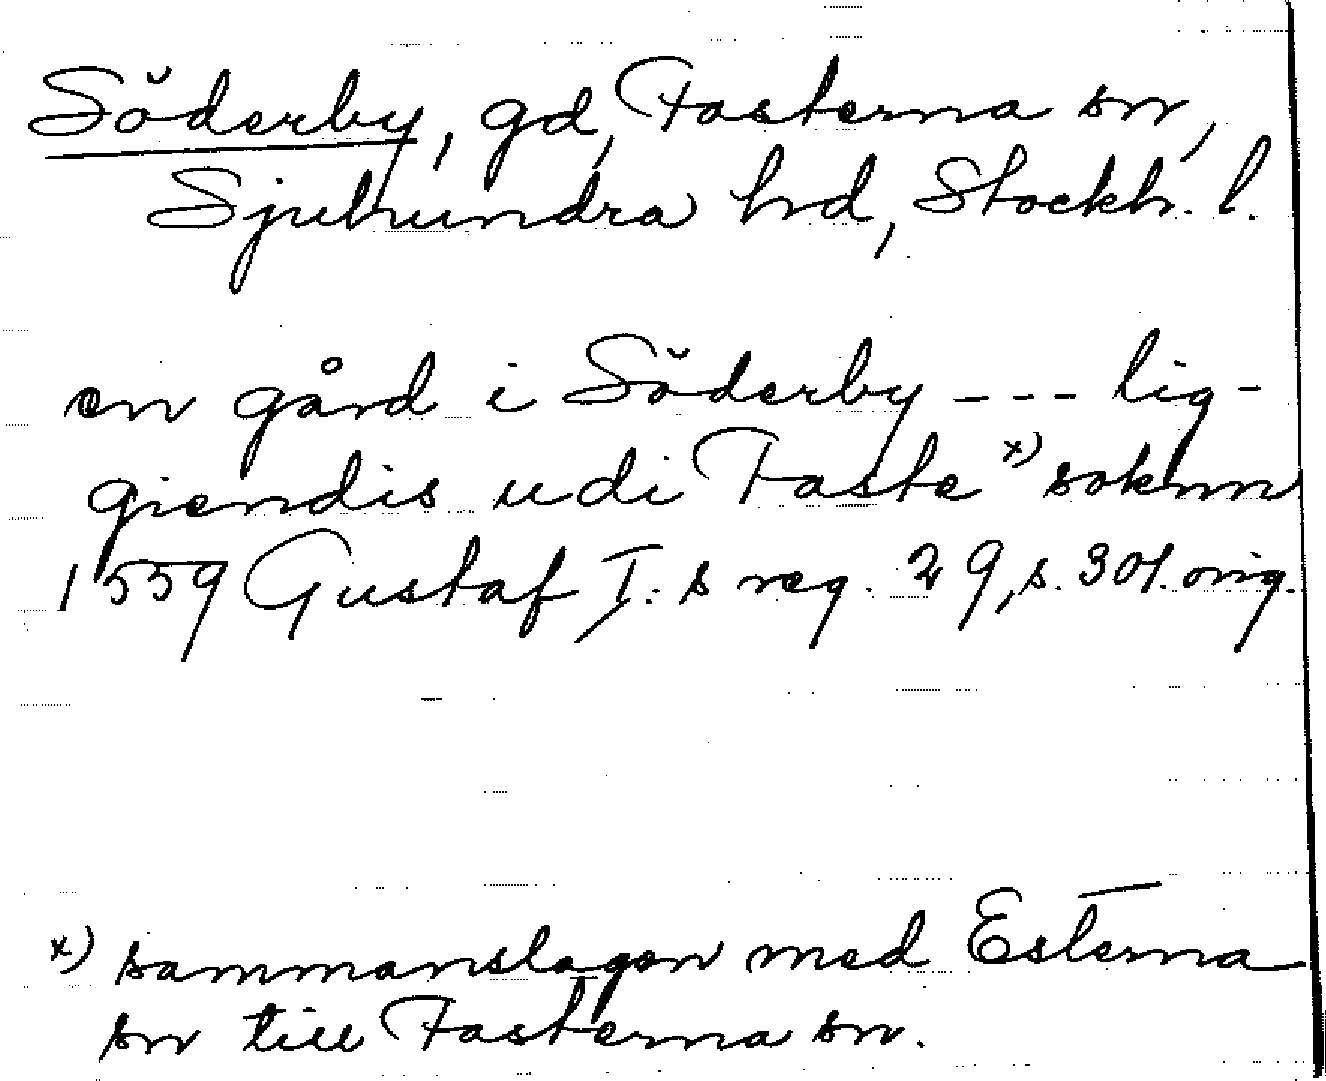 Söderby, gd, Fasterna sn,
Sjuhundra hd, Stockh. l.
en gård i Söderby --- lig-
giendis udi Faste x) soknn
1559 Gustaf I:s reg. 29, s. 301. orig.
x) sammanslagen med Esterna
sn till Fasterna sn.